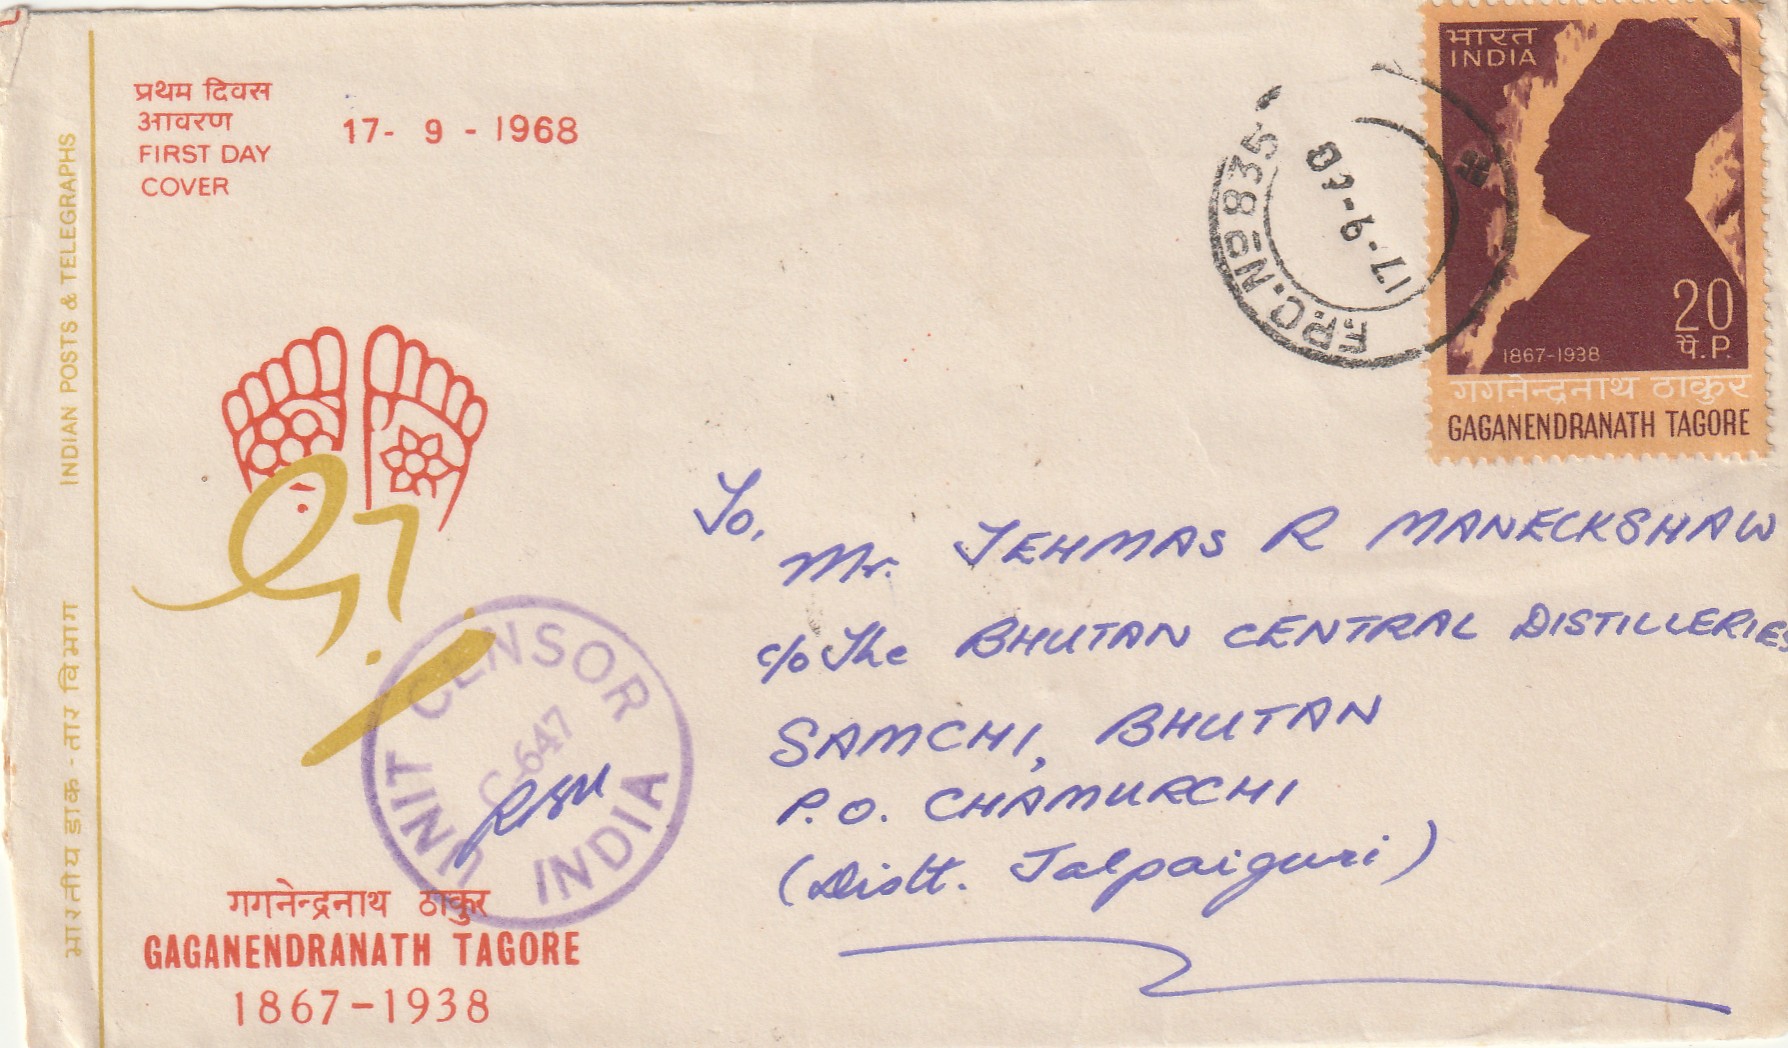 INDIAN POSTS & TELEGRAPHS
भारतीय डाक-तार विभाग
प्रथम दिवस
आवरण
FIRST DAY
COVER
17- 9 - 1968
F.P.O. No 835
17-9-68
भारत
INDIA
20
पै. P.
1867-1938
गगनेन्द्रनाथ ठाकुर
GAGANENDRANATH TAGORE
To,
Mr. JEHMAS R MANECKSHAW
c/o The BHUTAN CENTRAL DISTILLERIES
SAMCHI, BHUTAN
P.O. CHAMURCHI
(Distt. Jalpaiguri)
UNIT CENSOR
C-647
INDIA
गगनेन्द्रनाथ ठाकुर
GAGANENDRANATH TAGORE
1867-1938